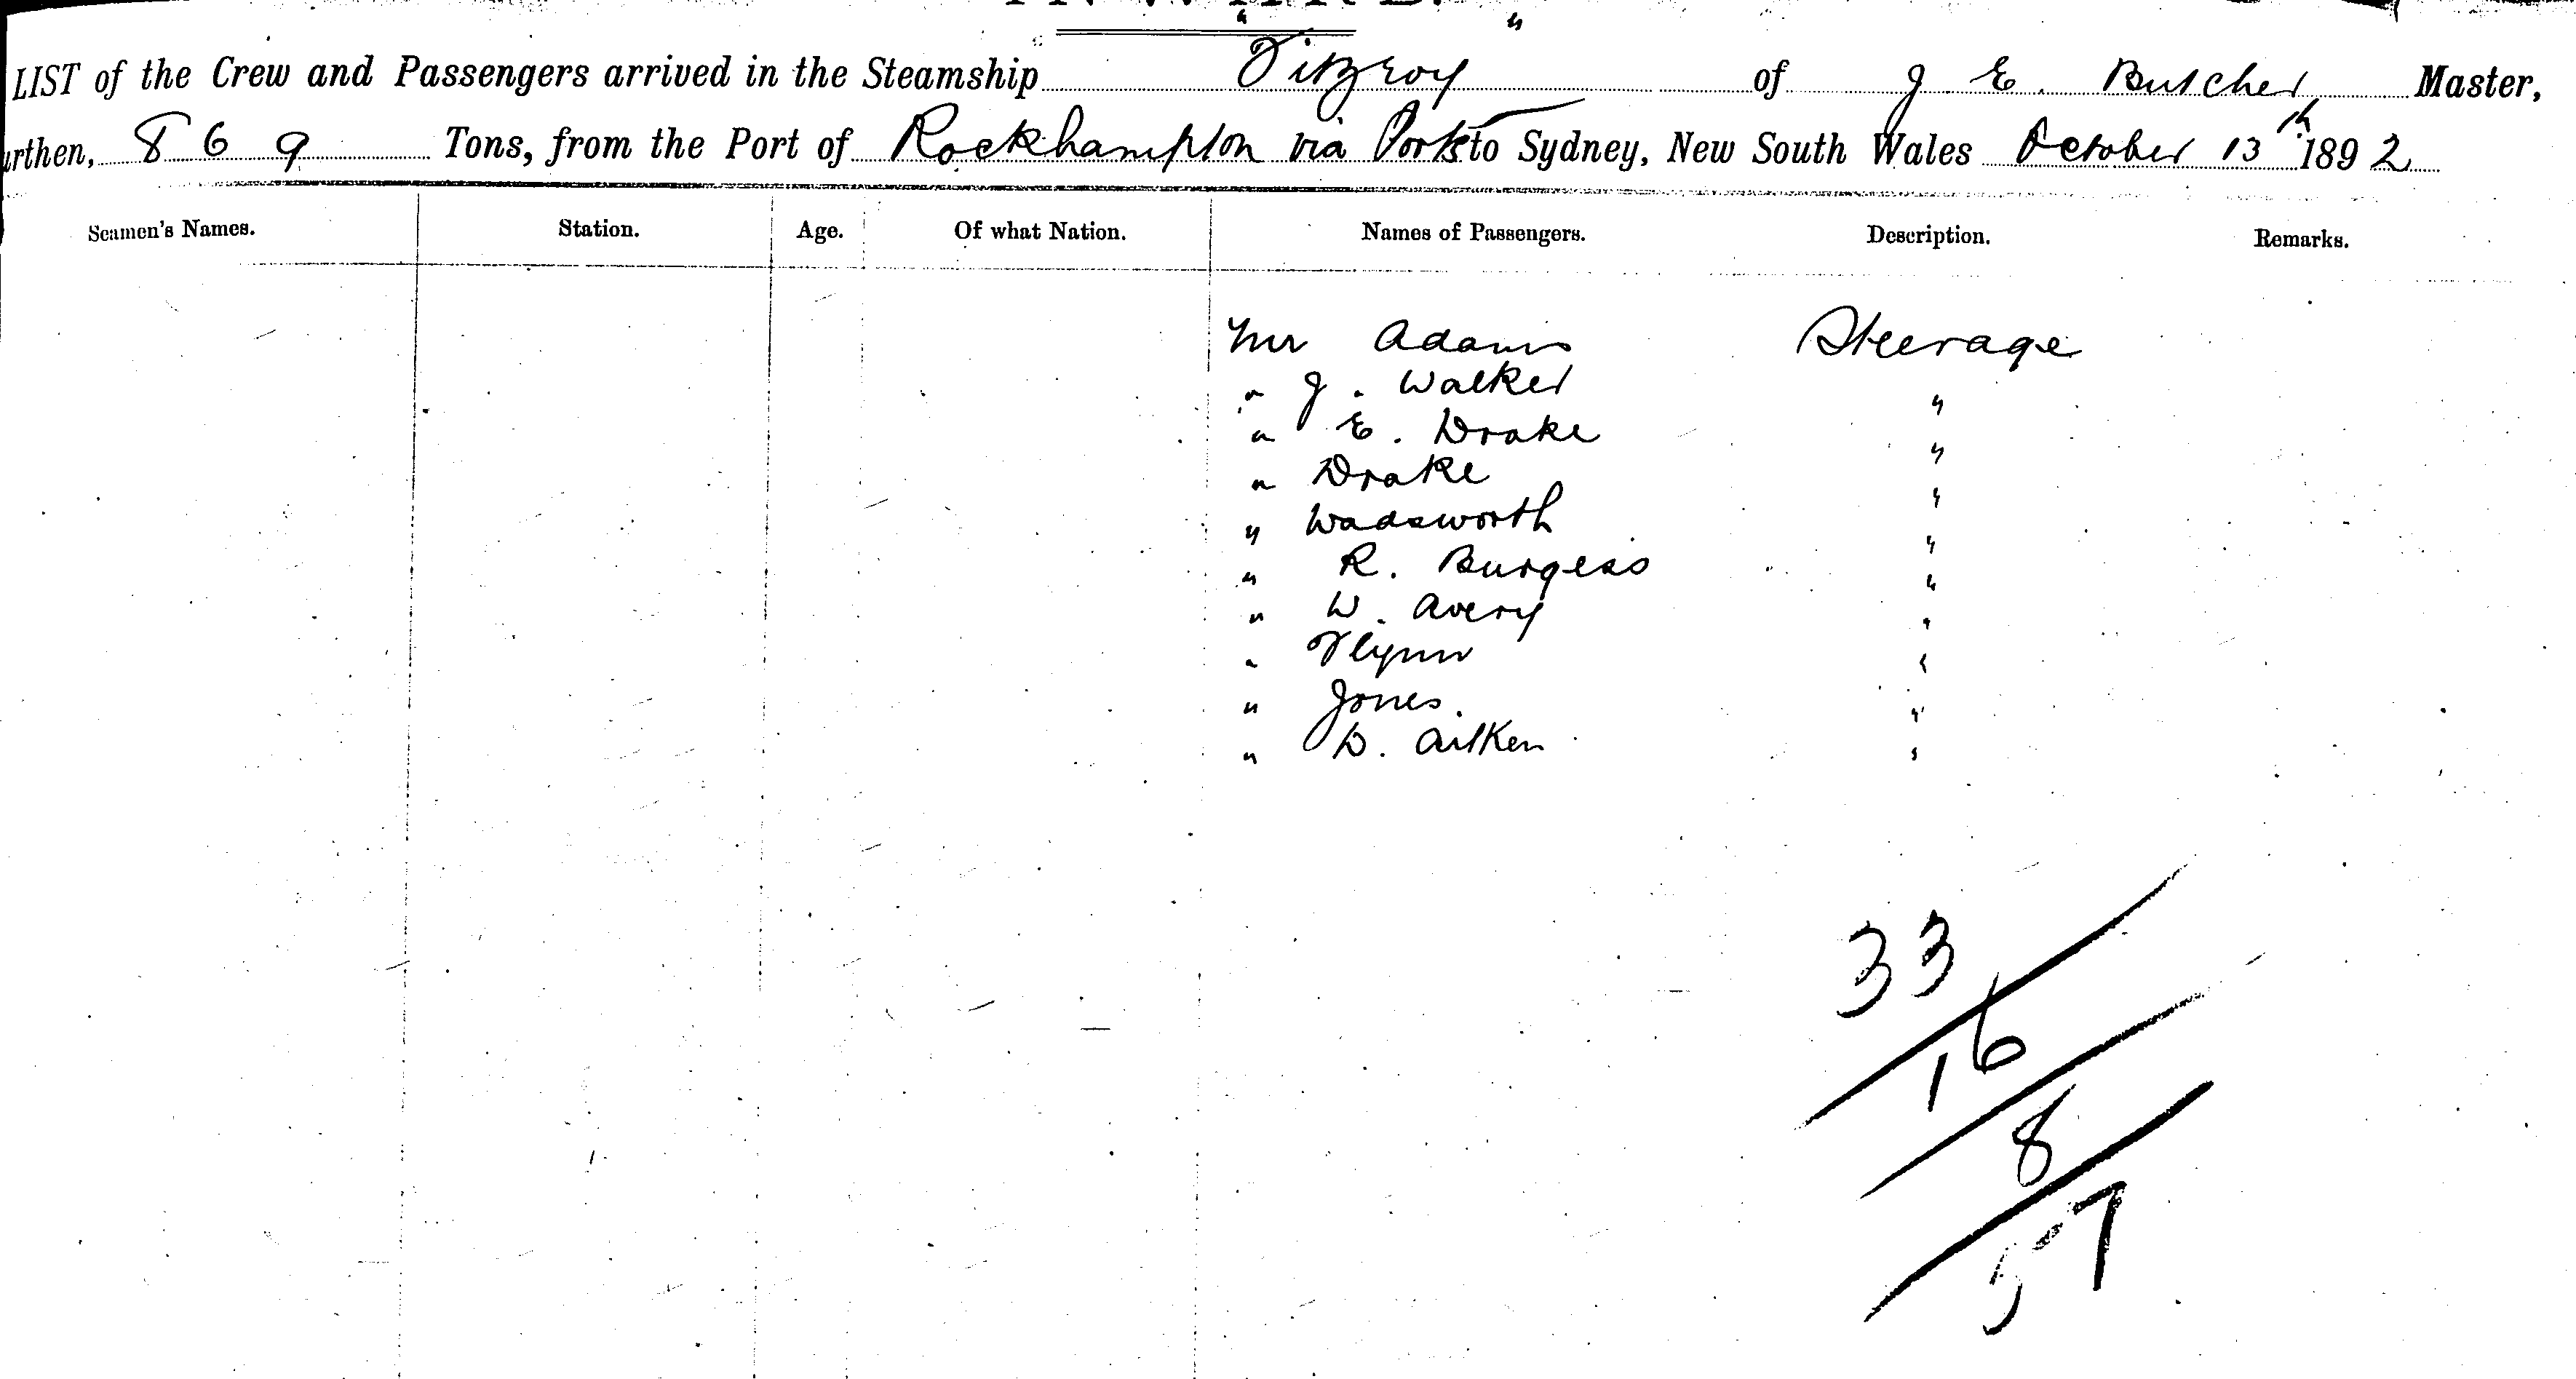 INWARD.
LIST of the Crew and Passengers arrived in the Steamship "Fitzroy" of J E. Butcher Master,
urthen, 869 Tons, from the Port of Rockhampton via Ports to Sydney, New South Wales October 13th 1892
Seamen's Names. Station. Age. Of what Nation. Names of Passengers. Description. Remarks.
Mr Adams Steerage
" J. Walker "
" E. Drake "
" Drake "
" Wadsworth "
" R. Burgess "
" W. Avery "
" Flynn "
" Jones. "
" D. Aitken "
33
16
8
57